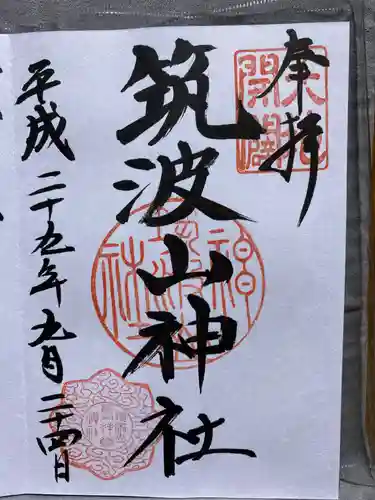 奉拝
筑波山神社
平成二十五年九月二十四日